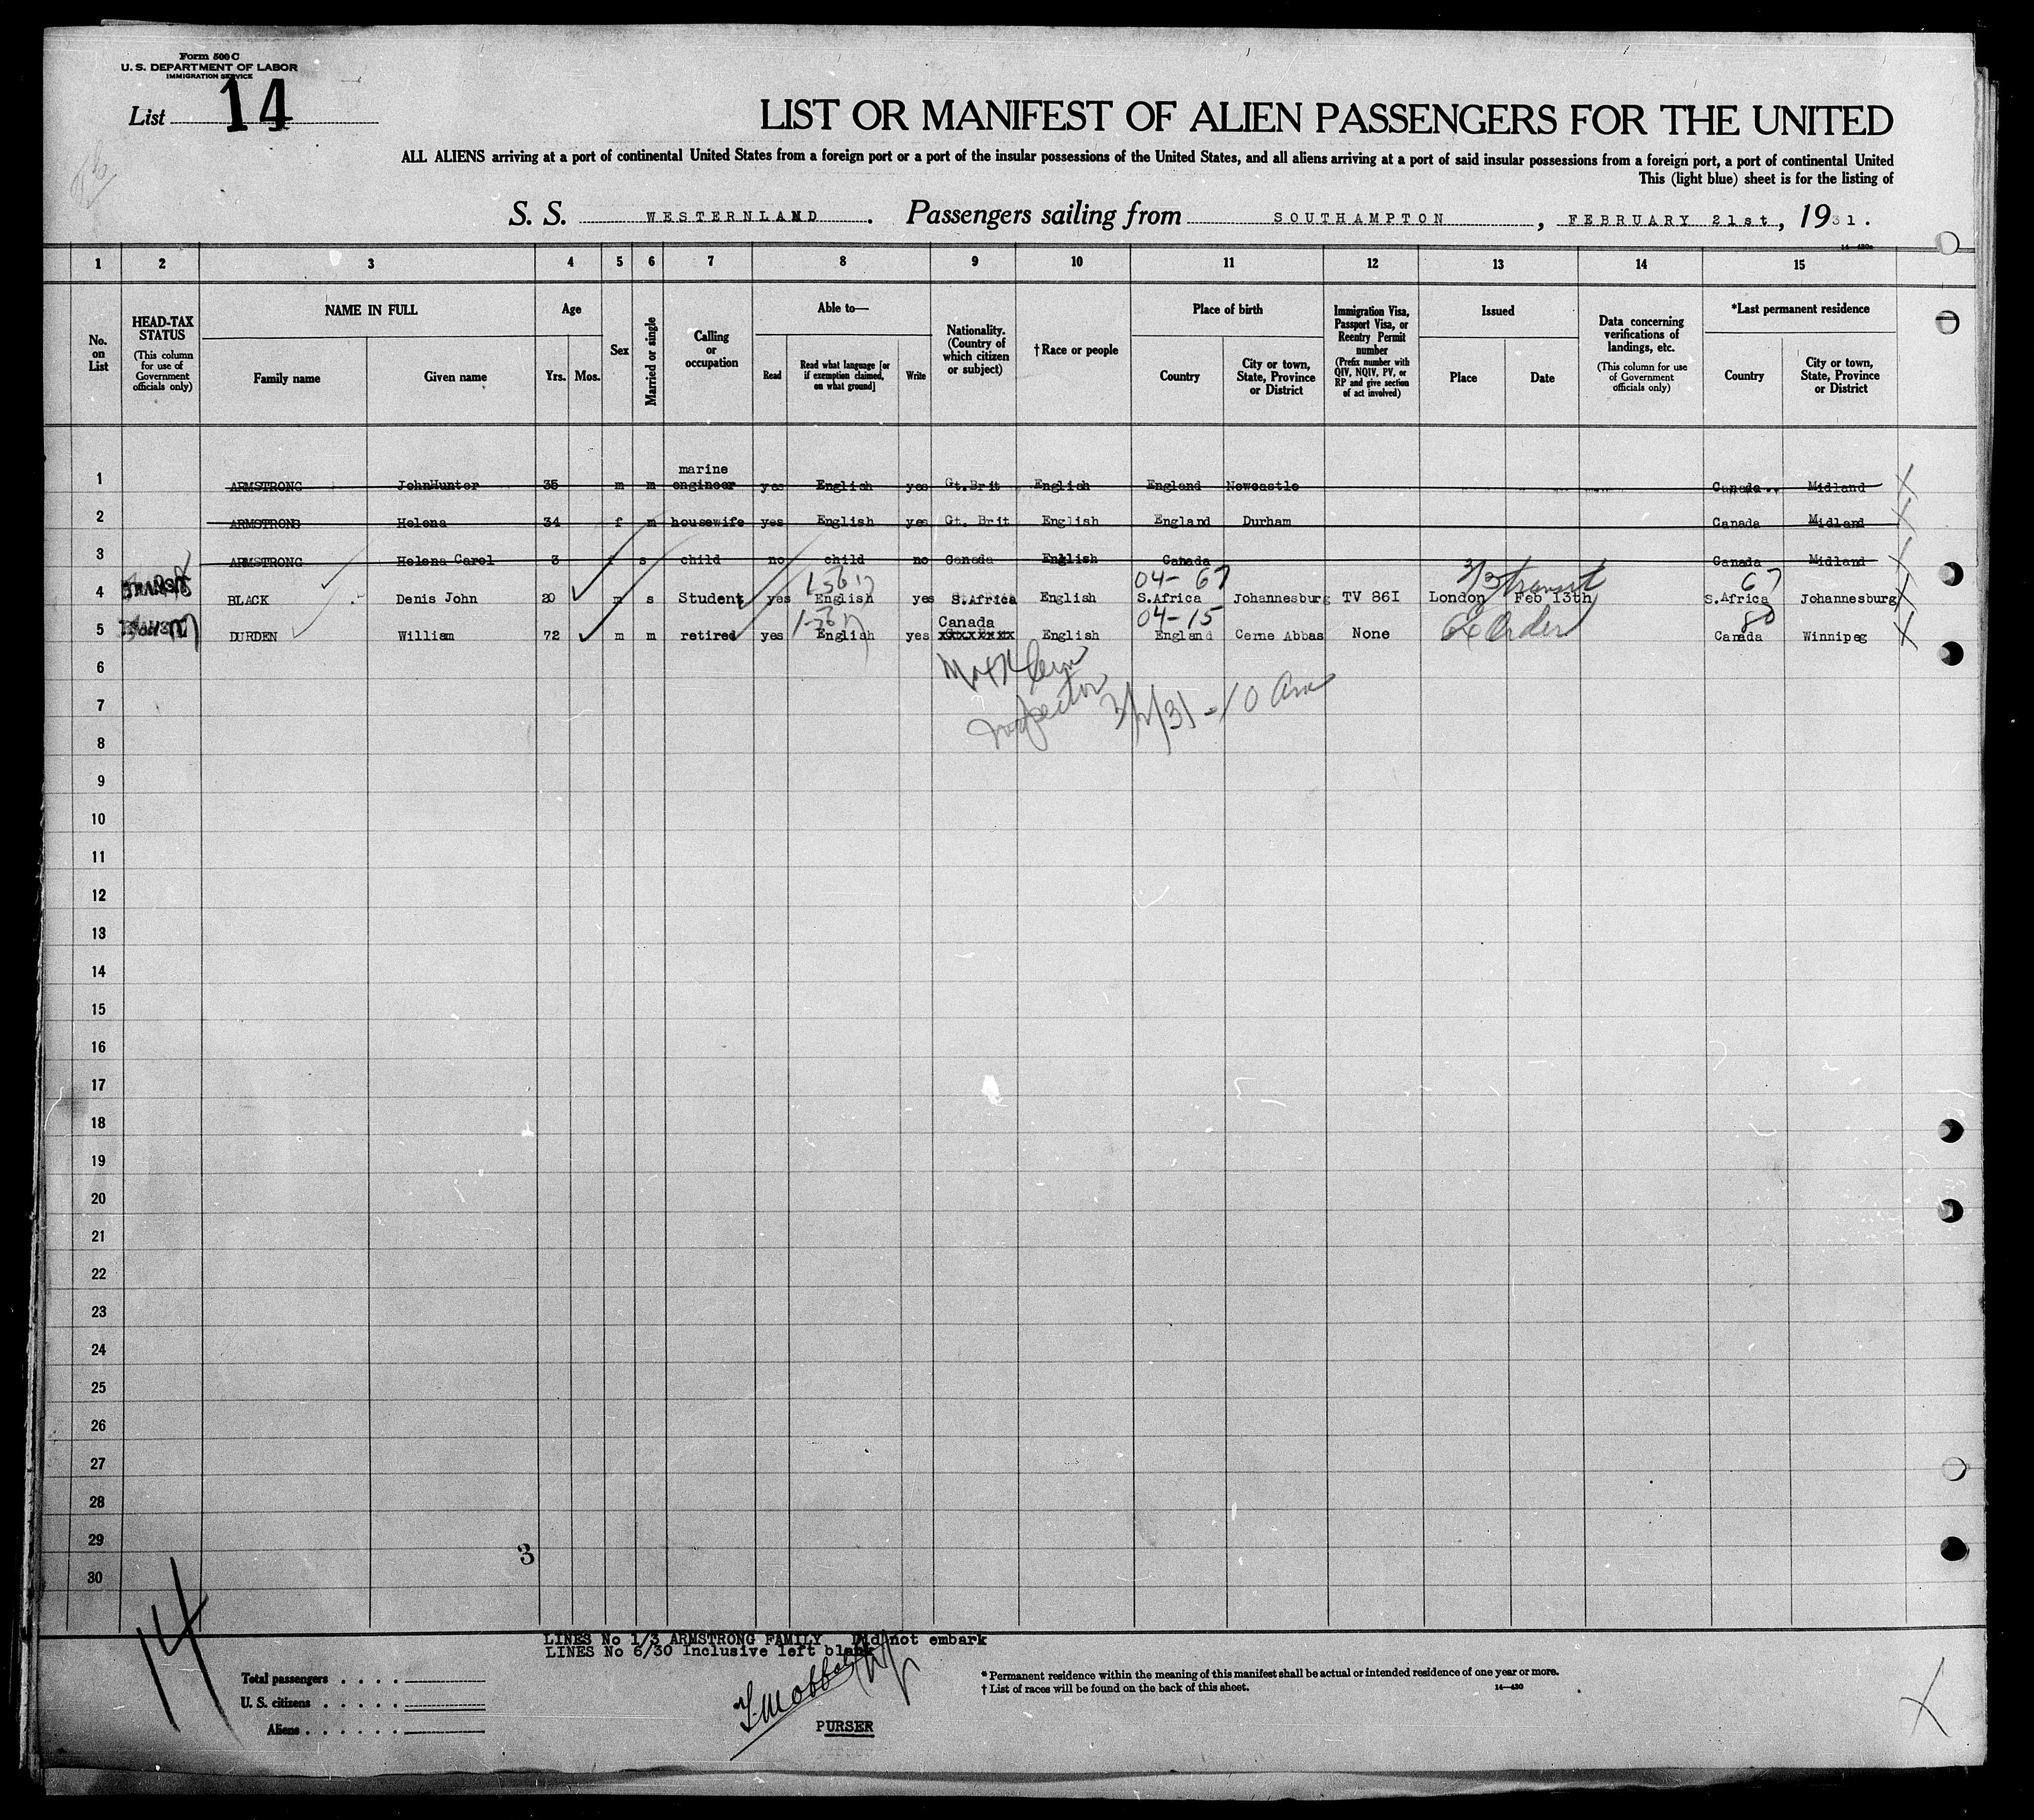 Form 500 C
U. S. DEPARTMENT OF LABOR
IMMIGRATION SERVICE
List 14
LIST OR MANIFEST OF ALIEN PASSENGERS FOR THE UNITED
ALL ALIENS arriving at a port of continental United States from a foreign port or a port of the insular possessions of the United States, and all aliens arriving at a port of said insular possessions from a foreign port, a port of continental United
This (light blue) sheet is for the listing of
S. S. WESTERNLAND. Passengers sailing from SOUTHAMPTON, FEBRUARY 21st, 1931.
14—430a
1 2 3 4 5 6 7 8 9 10 11 12 13 14 15
No. on List
HEAD-TAX STATUS (This column for use of Government officials only)
NAME IN FULL
Family name Given name
Age
Yrs. Mos.
Sex
Married or single
Calling or occupation
Able to—
Read
Read what language [or if exemption claimed, on what ground]
Write
Nationality. (Country of which citizen or subject)
†Race or people
Place of birth
Country
City or town, State, Province or District
Immigration Visa, Passport Visa, or Reentry Permit number (Prefix number with QIV, NQIV, PV, or RP and give section of act involved)
Issued
Place Date
Data concerning verifications of landings, etc. (This column for use of Government officials only)
*Last permanent residence
Country
City or town, State, Province or District
1 ARMSTRONG JohnHunter 35 m m marine engineer yes English yes Gt.Brit English England Newcastle Canada Midland X
2 ARMSTRONG Helena 34 f m housewife yes English yes Gt. Brit English England Durham Canada Midland X
3 ARMSTRONG Helena Carol 3 f s child no child no Canada English Canada Canada Midland X
04- 67 3/3 transit 67
4 TRANSIT BLACK Denis John 20 m s Student yes English yes S.Africa English S.Africa Johannesburg TV 861 London Feb 13th S.Africa Johannesburg X
Canada 04-15 Ex Order 80
5 DURDEN William 72 m m retired yes English yes xxxxxxxx English England Cerne Abbas None Canada Winnipeg X
6
Inspector 3/2/31 - 10 am
7
8
9
10
11
12
13
14
15
16
17
18
19
20
21
22
23
24
25
26
27
28
29
3
30
14
LINES No 1/3 ARMSTRONG FAMILY Did not embark
LINES No 6/30 Inclusive left blank
Total passengers
U. S. citizens
Aliens
PURSER
* Permanent residence within the meaning of this manifest shall be actual or intended residence of one year or more.
† List of races will be found on the back of this sheet.
14—430
X